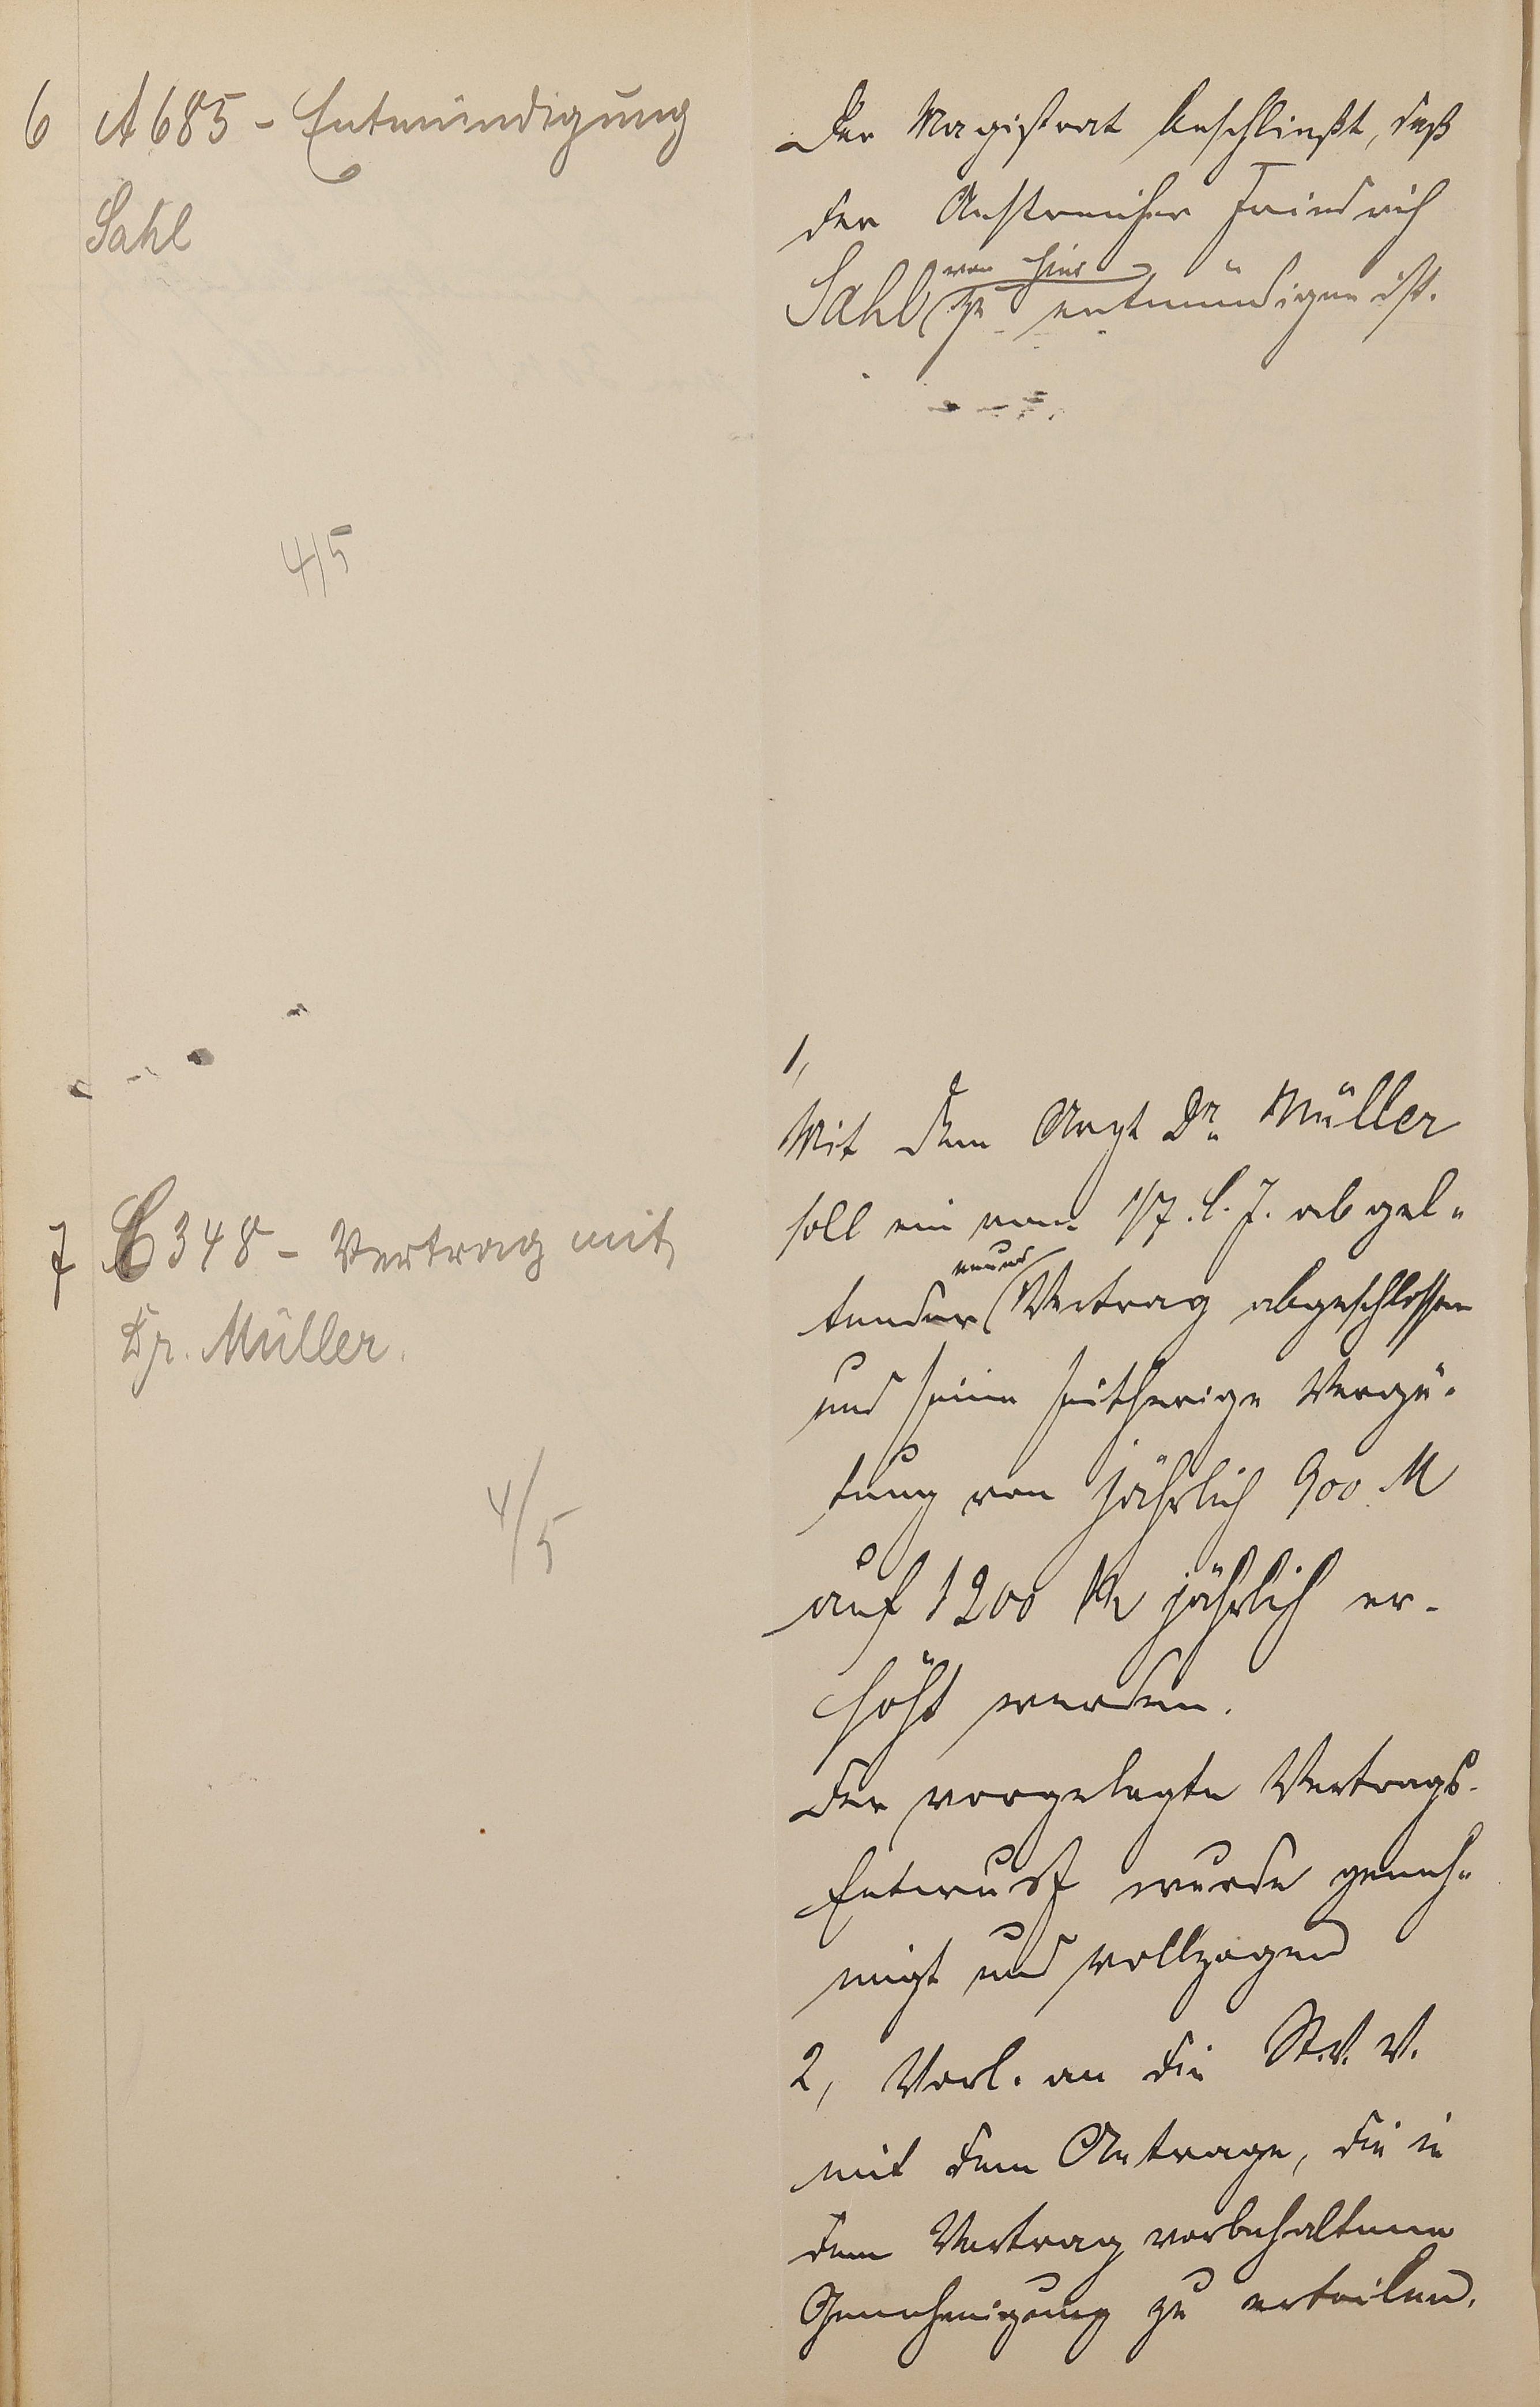 6 A 685 - Entmündigung
Sahl
4/5
Der Magistrat beschließt, daß
der Anstreicher Friedrich
Sahl von hier zu entmündigen ist.
7 C 348 - Vertrag mit
Dr. Müller.
4/5
1,
Mit dem Arzt Dr. Müller
soll ein vom 1/7. l. J. ab gel-
tender neuer Vertrag abgeschlossen
und seine seitherige Vergü-
tung von jährlich 900 M
auf 1200 M jährlich er-
höht werden.
Der vorgelegte Vertrags-
Entwurf wurde geneh-
migt und vollzogen
2, Vorl. an die St. V. V.
mit dem Antrage, die in
dem Vertrag vorbehaltene
Genehmigung zu erteilen.